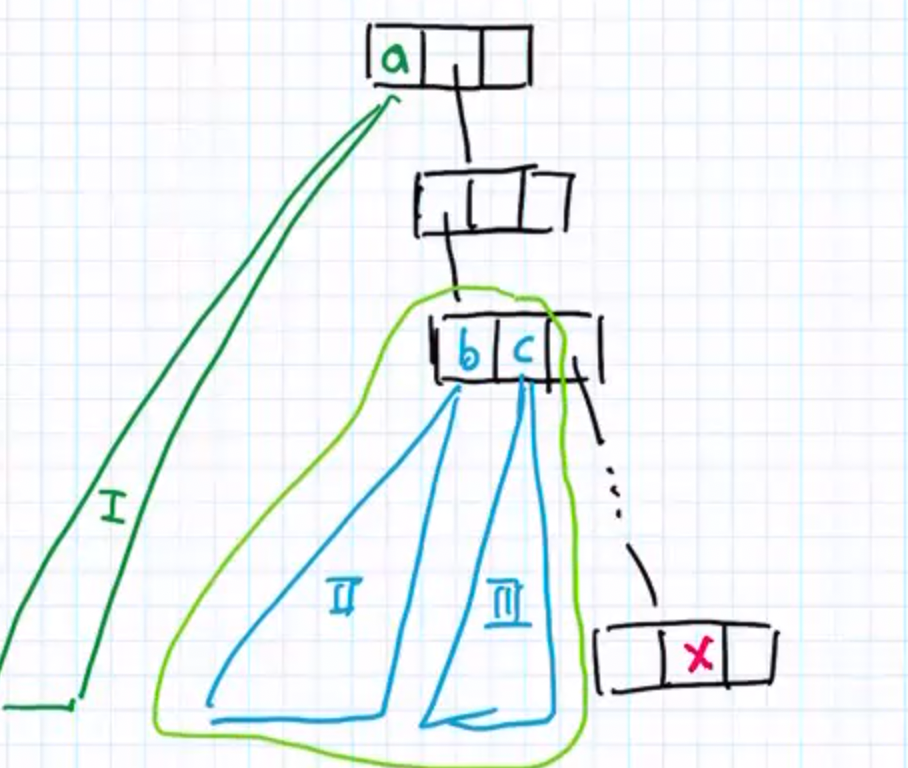 a
b c
I
II III
x